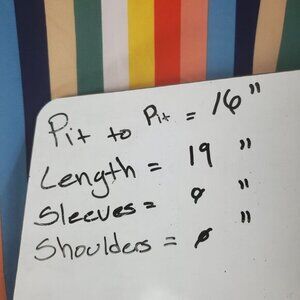 Pit to Pit = 16"
Length = 19 "
Sleeves = 0 "
Shoulders = 0 "